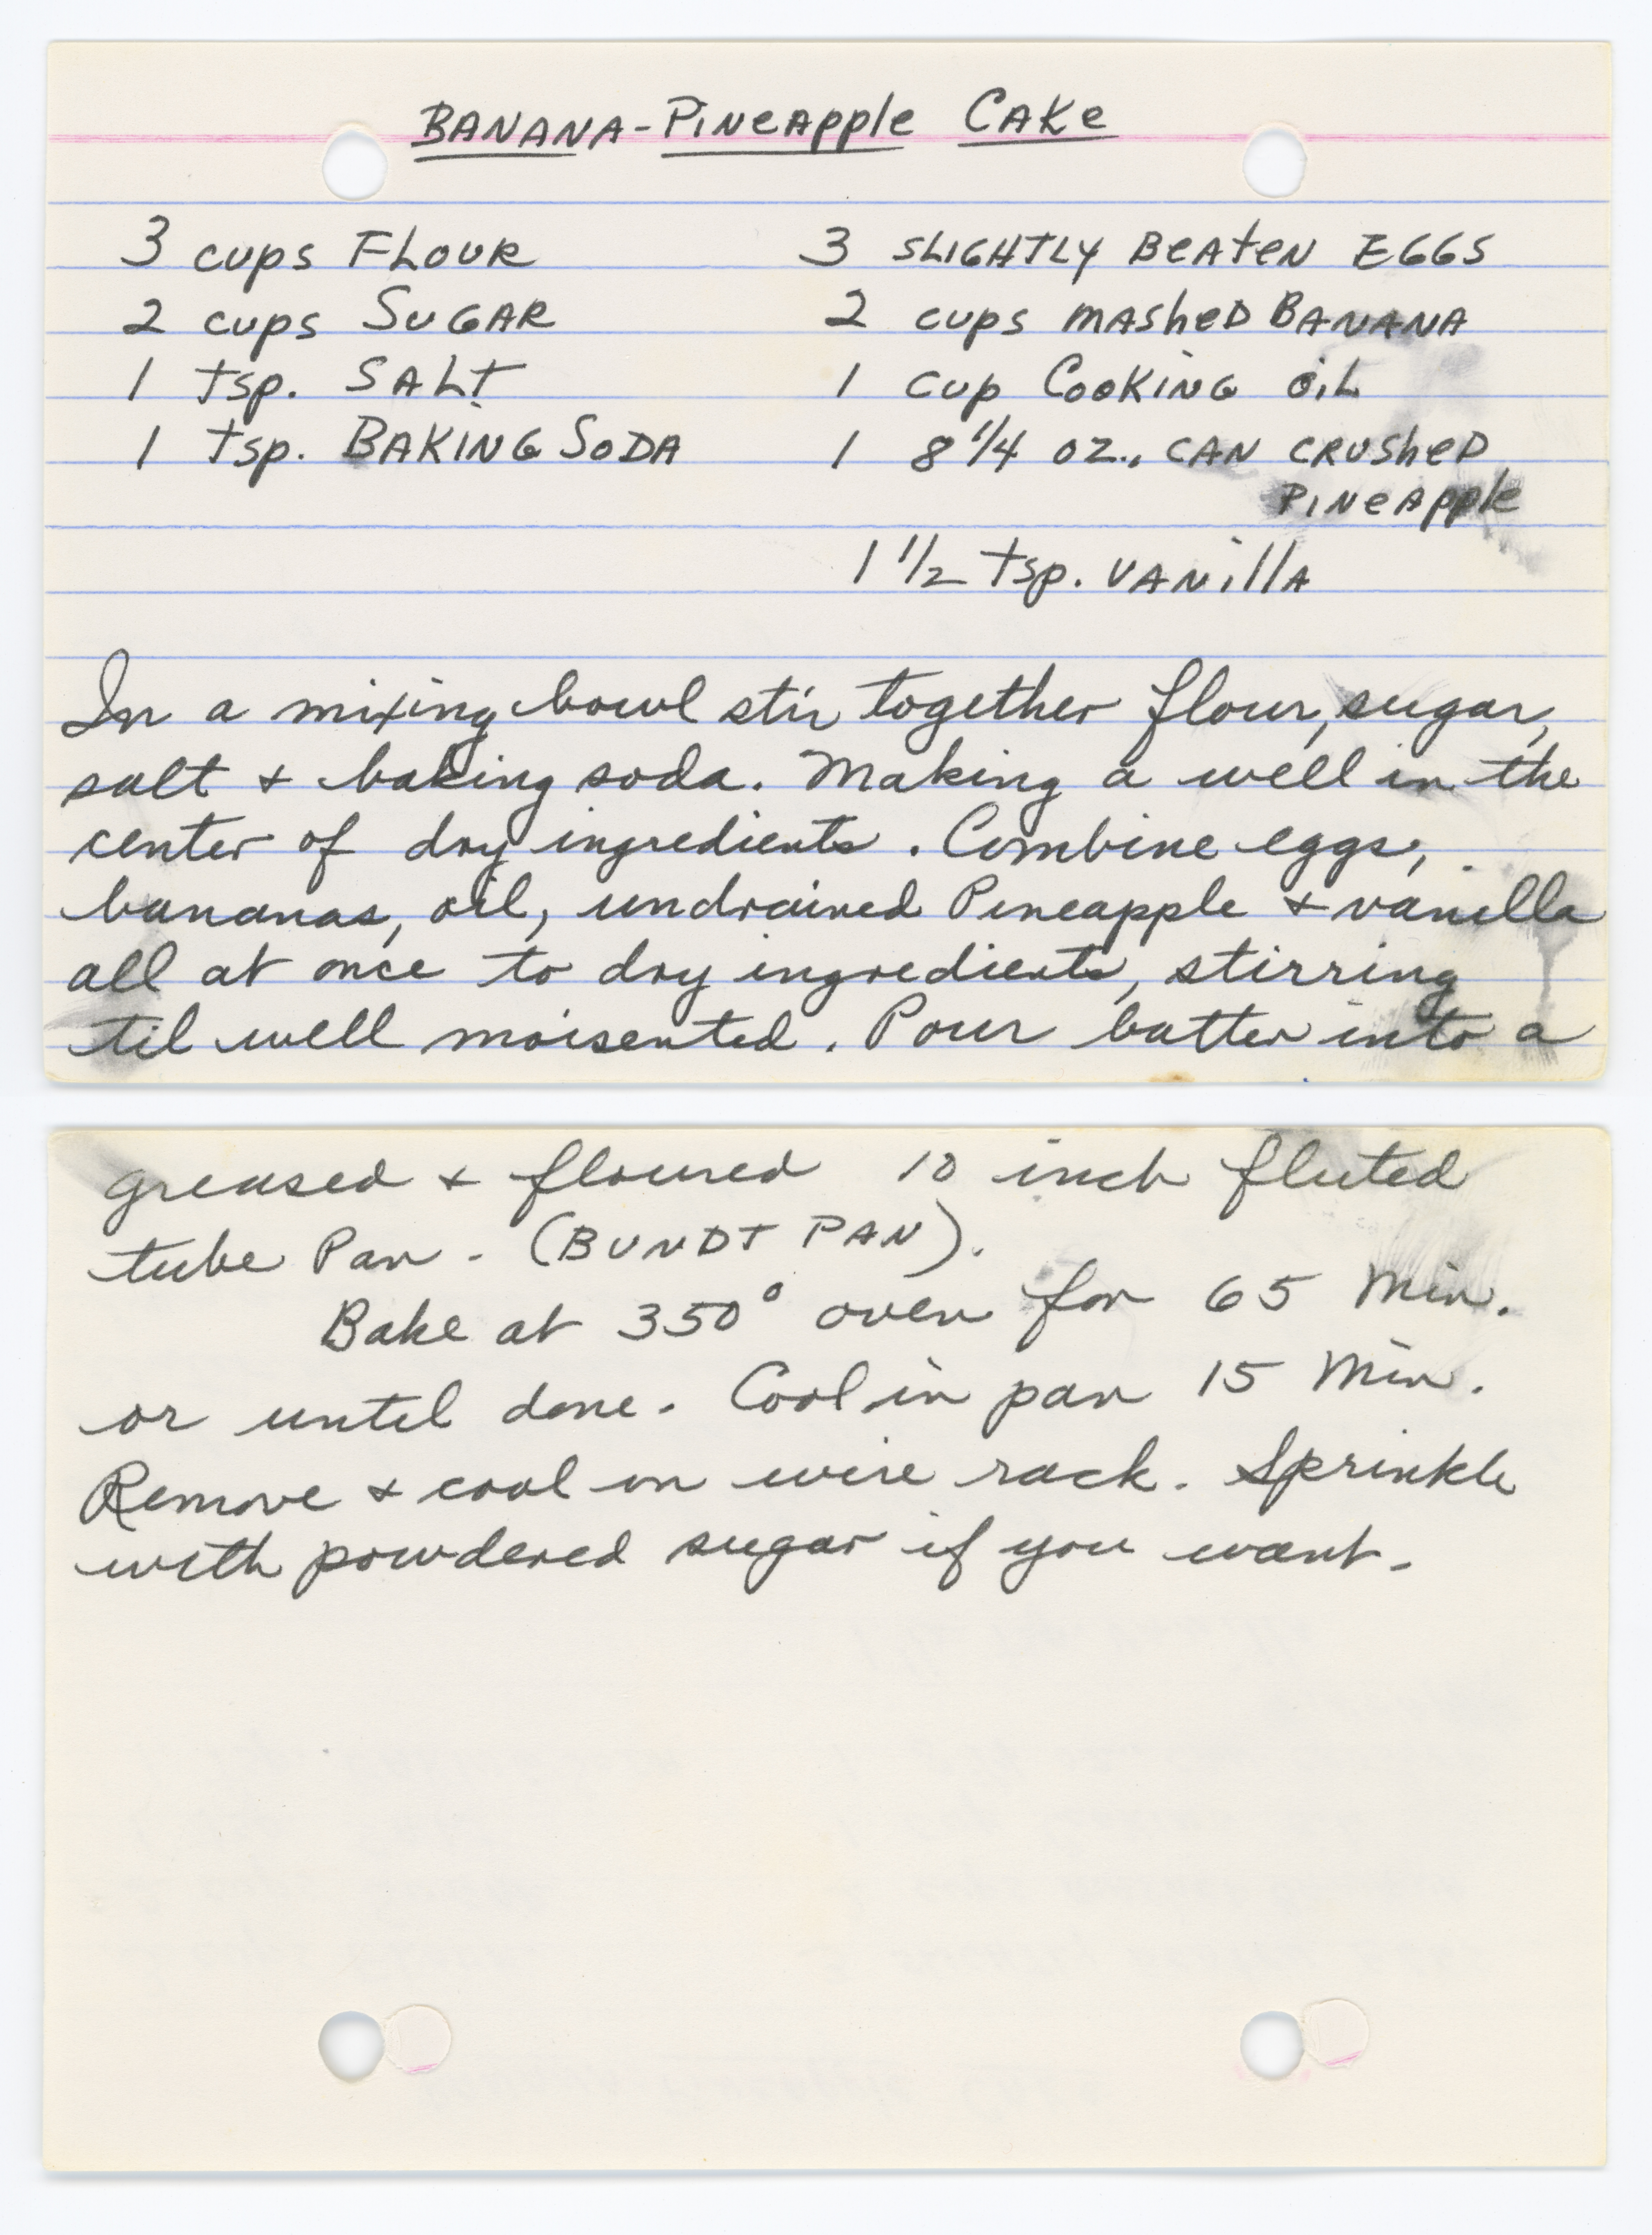 BANANA-PINEAPPLE CAKE
3 cups FLOUR
2 cups SUGAR
1 tsp. SALT
1 tsp. BAKING SODA
3 SLIGHTLY BEATEN EGGS
2 cups MASHED BANANA
1 cup COOKING OIL
1 8 1/4 OZ., CAN CRUSHED
PINEAPPLE
1 1/2 tsp. VANILLA
In a mixing bowl stir together flour, sugar,
salt + baking soda. Making a well in the
center of dry ingredients. Combine eggs,
bananas, oil, undrained Pineapple + vanilla
all at once to dry ingredients, stirring
til well moisented. Pour batter into a
greased + floured 10 inch fluted
tube Pan. (BUNDT PAN).
Bake at 350° oven for 65 Min.
or until done. Cool in pan 15 Min.
Remove + cool on wire rack. Sprinkle
with powdered sugar if you want.